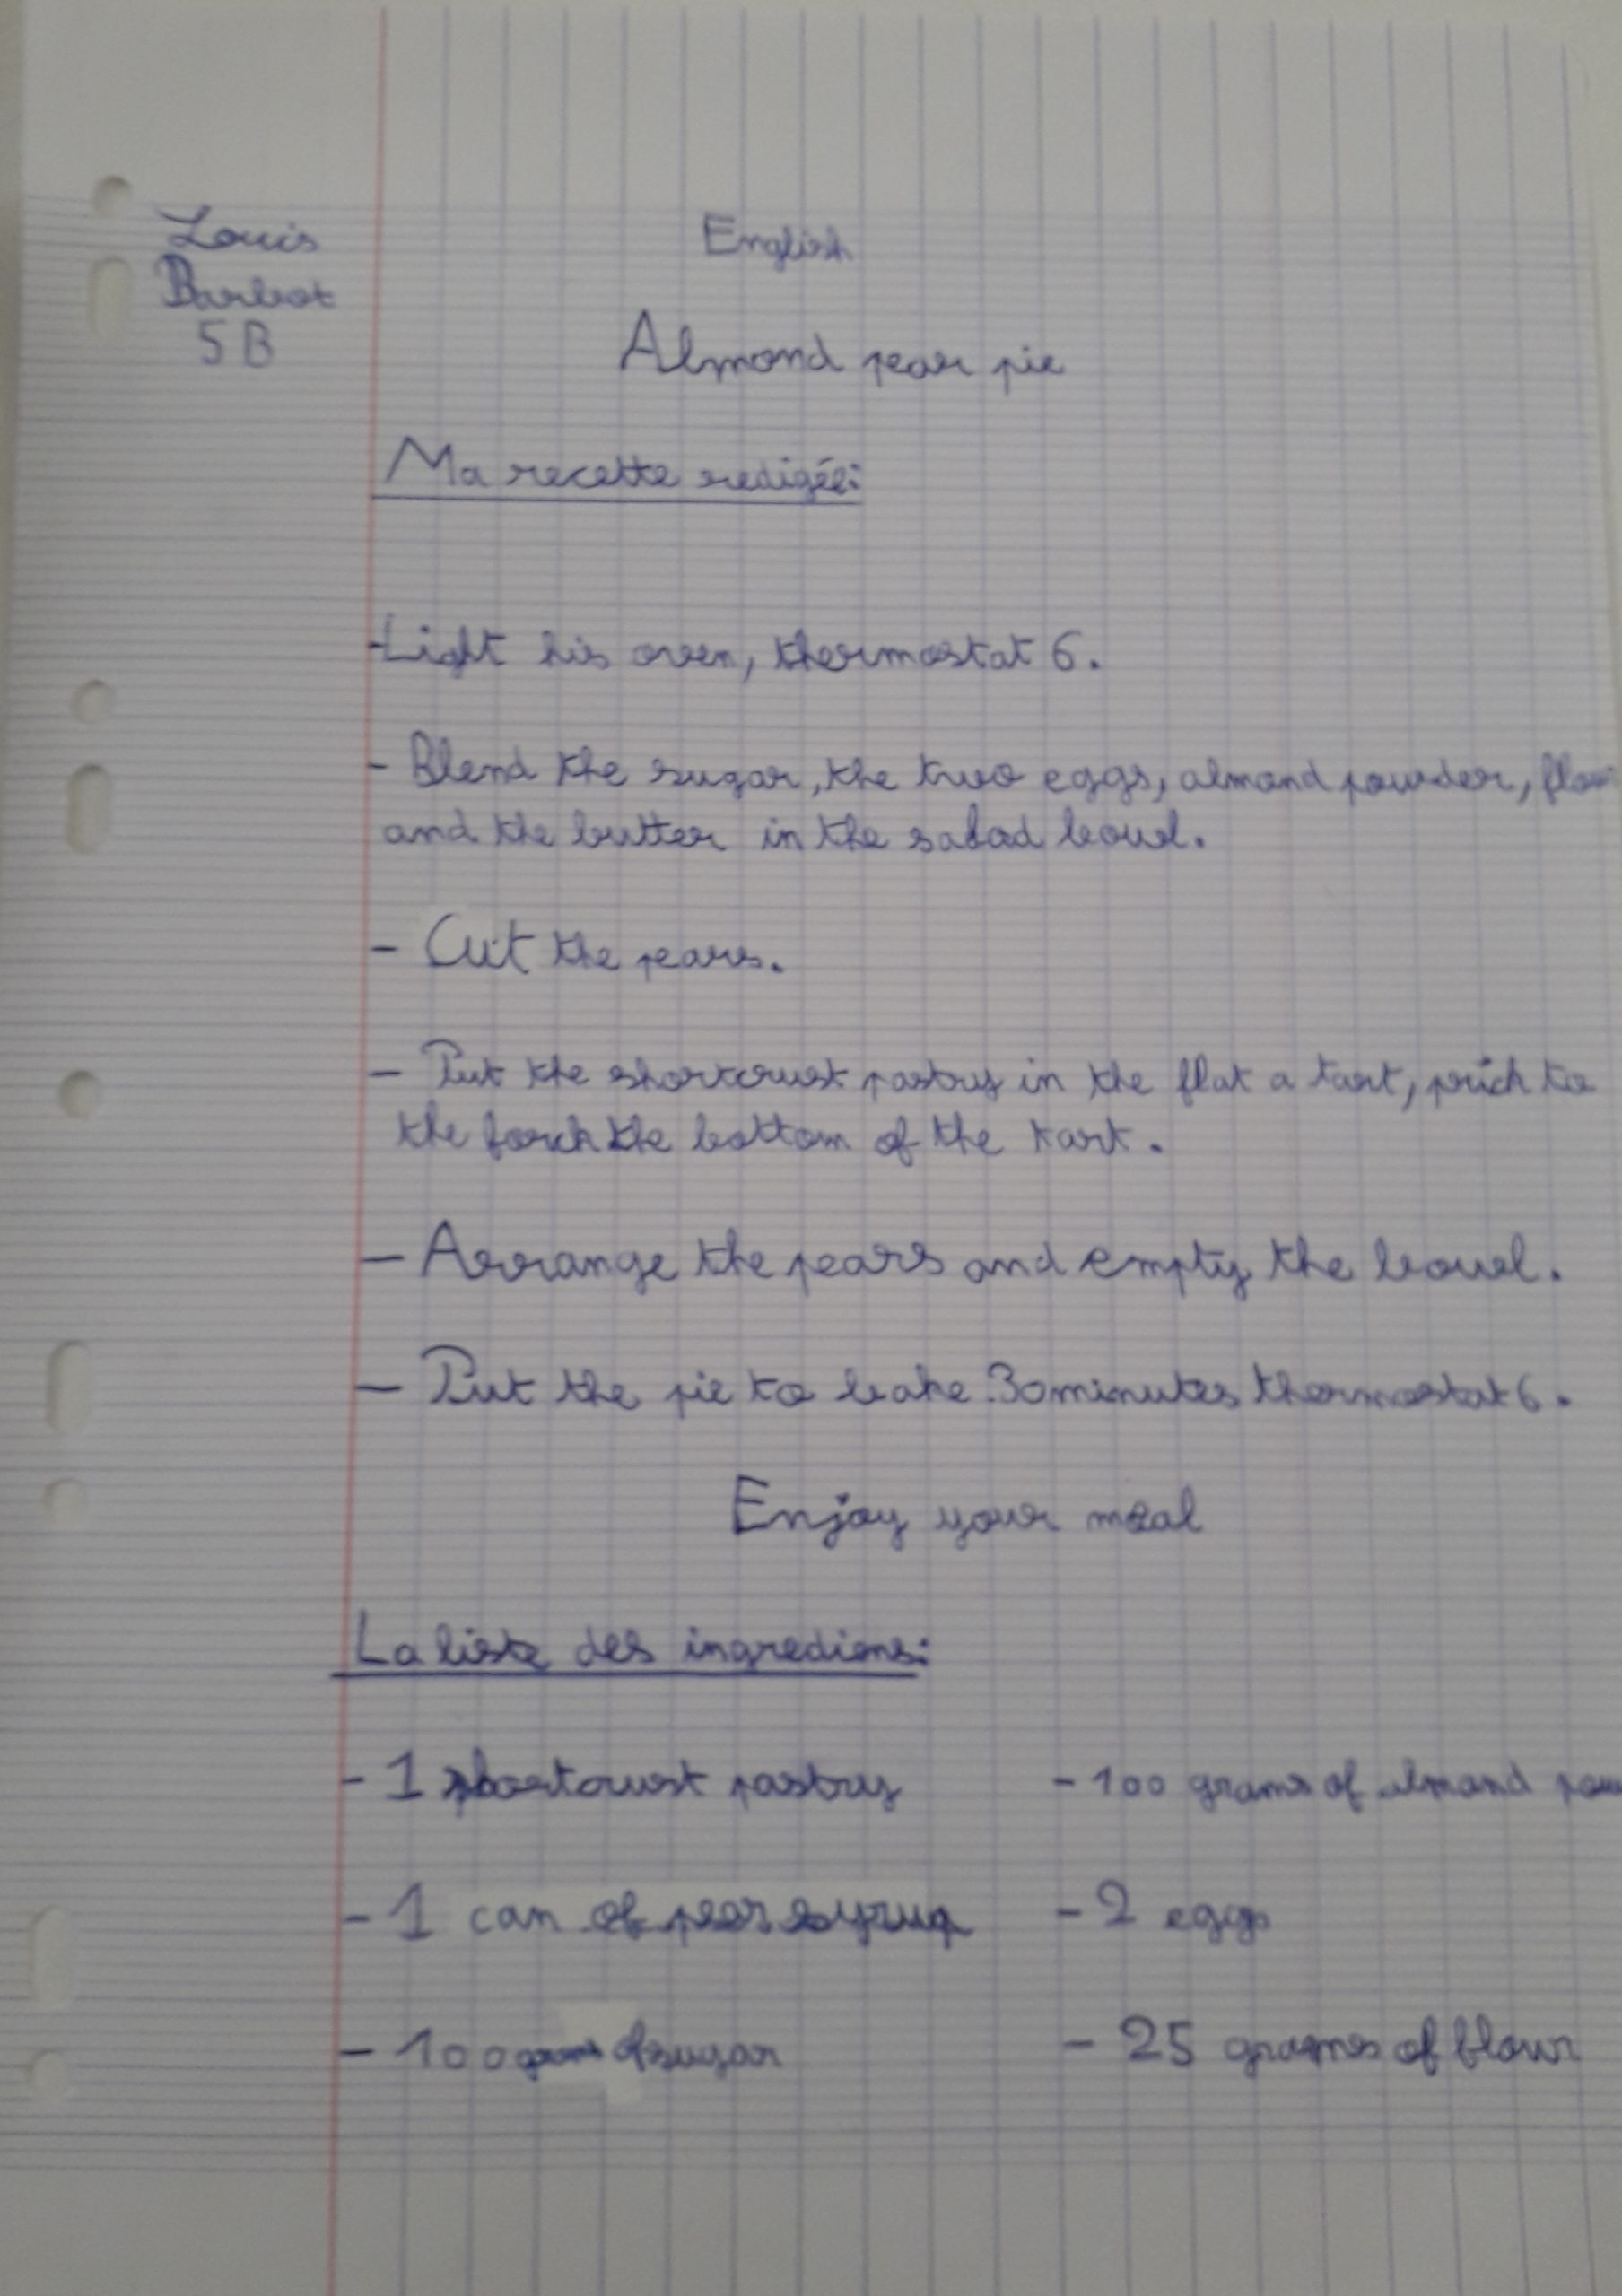 Louis
Barbot
5B
English
Almond pear pie
Ma recette redigée:
-Light his oven, thermostat 6.
- Blend the sugar, the two eggs, almond powder,
and the butter in the salad bowl.
- Cut the pears.
- Put the shortcrust pastry in the flat a tart, prick to
the forck the bottom of the tart.
- Arrange the pears and empty the bowl.
- Put the pie to bake 30minutes thermostat 6.
Enjoy your meal
La liste des ingrediens:
- 1 shortcrust pastry
- 100 grams of almond
- 1 can of pear syrup
- 2 eggs
- 100 grams of sugar
- 25 grames of flour